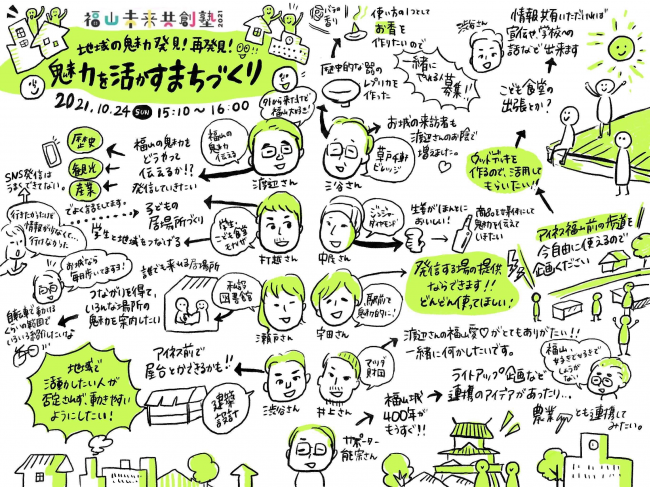 福山未来共創塾 2021
地域の魅力発見！再発見！
魅力を活かすまちづくり
2021.10.24 SUN 15:10～16:00
歴史
観光
産業
SNS発信は
うまくできない。
福山の魅力を
どうやって
伝えるか!?
発信していきたい
福山の
魅力
伝える
外から来た方が
福山大好き!
渡辺さん
でよく話をしてます。
子どもの
居場所づくり
学生と地域もつなげる
学生、
こども食堂
村越さん
行きたかったけど
情報が少なくて…
行けなかった
お城なら
毎日歩いてます!
自転車で動ける
くらいの範囲で
つながりを得て、
いろんな場所の
魅力を案内したい
誰でも来れる居場所
私設
図書館
瀬戸さん
地域で
活動したい人が
否定されず、動きやすい
ようにしたい!
アイネス前で
屋台とかできるかも!!
建築
設計
渋谷さん
香り
使い方の1つとして
お香を
作りたいので
一緒に
やれる人募集!!
歴史的な器の
レプリカを
作った
お城の来訪者も
渡辺さんのお陰で
増えました。
草戸千軒
ビレッジ
三谷さん
ジンジャー
ダイヤモンド
中尾さん
生姜がほんとに
おいしい!
商品を大事にして
魅力を伝えて
いきたい
発信する場の提供
ならできます!!
どんどん使ってほしい!
駅前で
宇田さん
渡辺さんの福山愛♡がとてもありがたい!!
一緒に何かしたいです。
アリタ
財団
井上さん
福山城
400年が
もうすぐ!!
ライトアップ企画など
連携のアイデアがあったり…
農業とも連携して
みたい。
福山、
しょうがない
サポーター
能宗さん
渋谷さん
情報共有いただければ
宣伝や、学校への
話など出来ます
こども食堂の
出張とか?
ウッドデッキを
作るので、活用して
もらいたい!!
アイネス福山前の歩道を
今自由に使えるので
企画ください